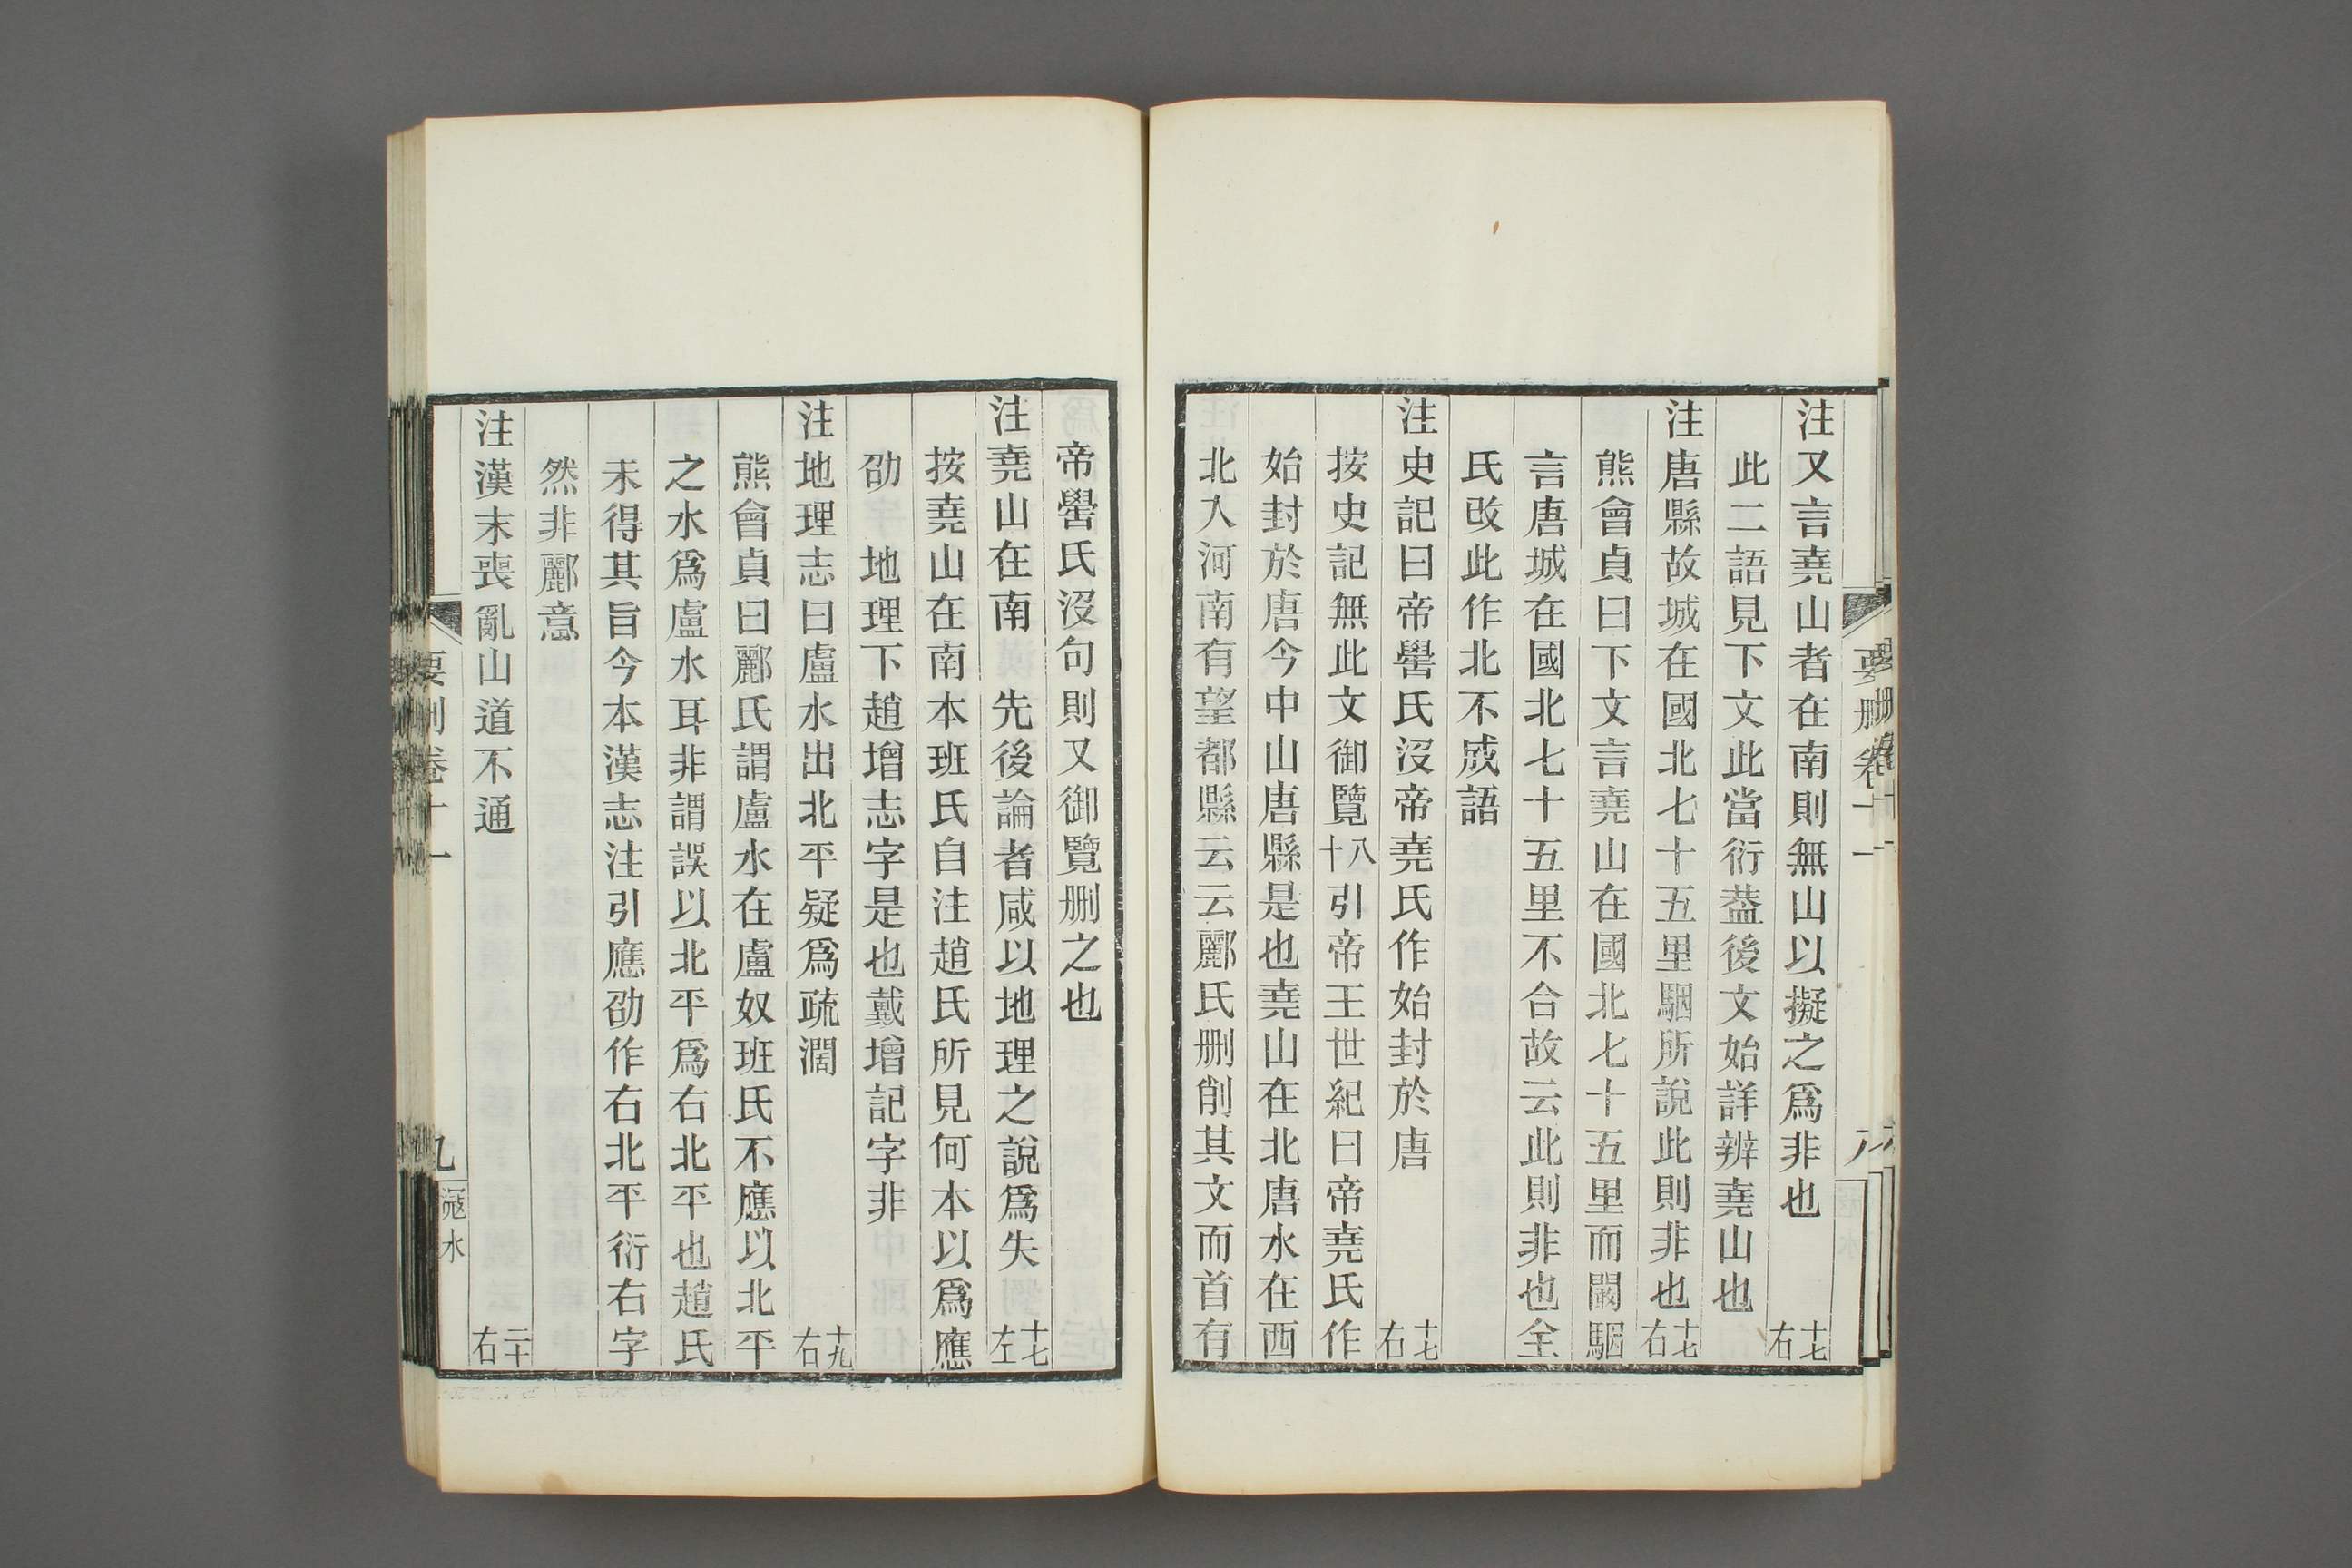 注又言堯山者在南則無山以擬之爲非也 十七右
此二語見下文此當衍葢後文始詳辨堯山也
注唐縣故城在國北七十五里駰所說此則非也 十七右
熊會貞曰下文言堯山在國北七十五里而闞駰
言唐城在國北七十五里不合故云此則非也全
氏改此作北不成語
注史記曰帝嚳氏沒帝堯氏作始封於唐 十七右
按史記無此文御覽八十引帝王世紀曰帝堯氏作
始封於唐今中山唐縣是也堯山在北唐水在西
北入河南有望都縣云云酈氏刪削其文而首有
帝嚳氏沒句則又御覽刪之也
注堯山在南 先後論者咸以地理之說爲失 十七左
按堯山在南本班氏自注趙氏所見何本以爲應
劭 地理下趙增志字是也戴增記字非
注地理志曰盧水出北平疑爲疏濶 十九右
熊會貞曰酈氏謂盧水在盧奴班氏不應以北平
之水爲盧水耳非謂誤以北平爲右北平也趙氏
未得其旨今本漢志注引應劭作右北平衍右字
然非酈意
注漢末喪亂山道不通 二十右
要刪卷十一
九
滱水
要刪卷十一
八